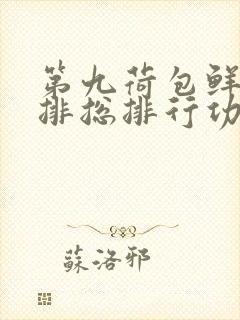 第九荷包鲜
排总排行功
蘇洛邪